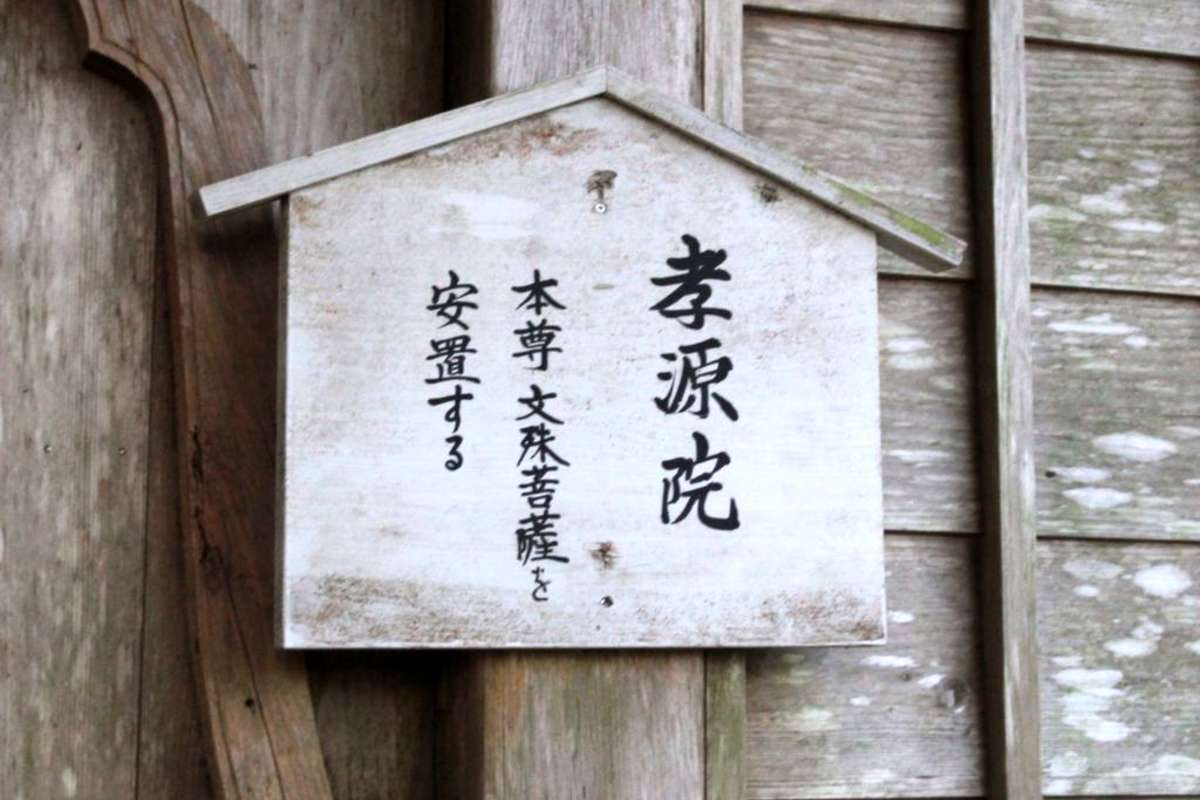 孝源院
本尊 文殊菩薩を
安置する